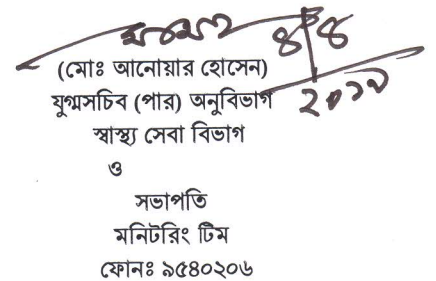 ৪/৪
২০১৯
(মোঃ আনোয়ার হোসেন)
যুগ্মসচিব (পার) অনুবিভাগ
স্বাস্থ্য সেবা বিভাগ
ও
সভাপতি
মনিটরিং টিম
ফোনঃ ৯৫৪০২০৬